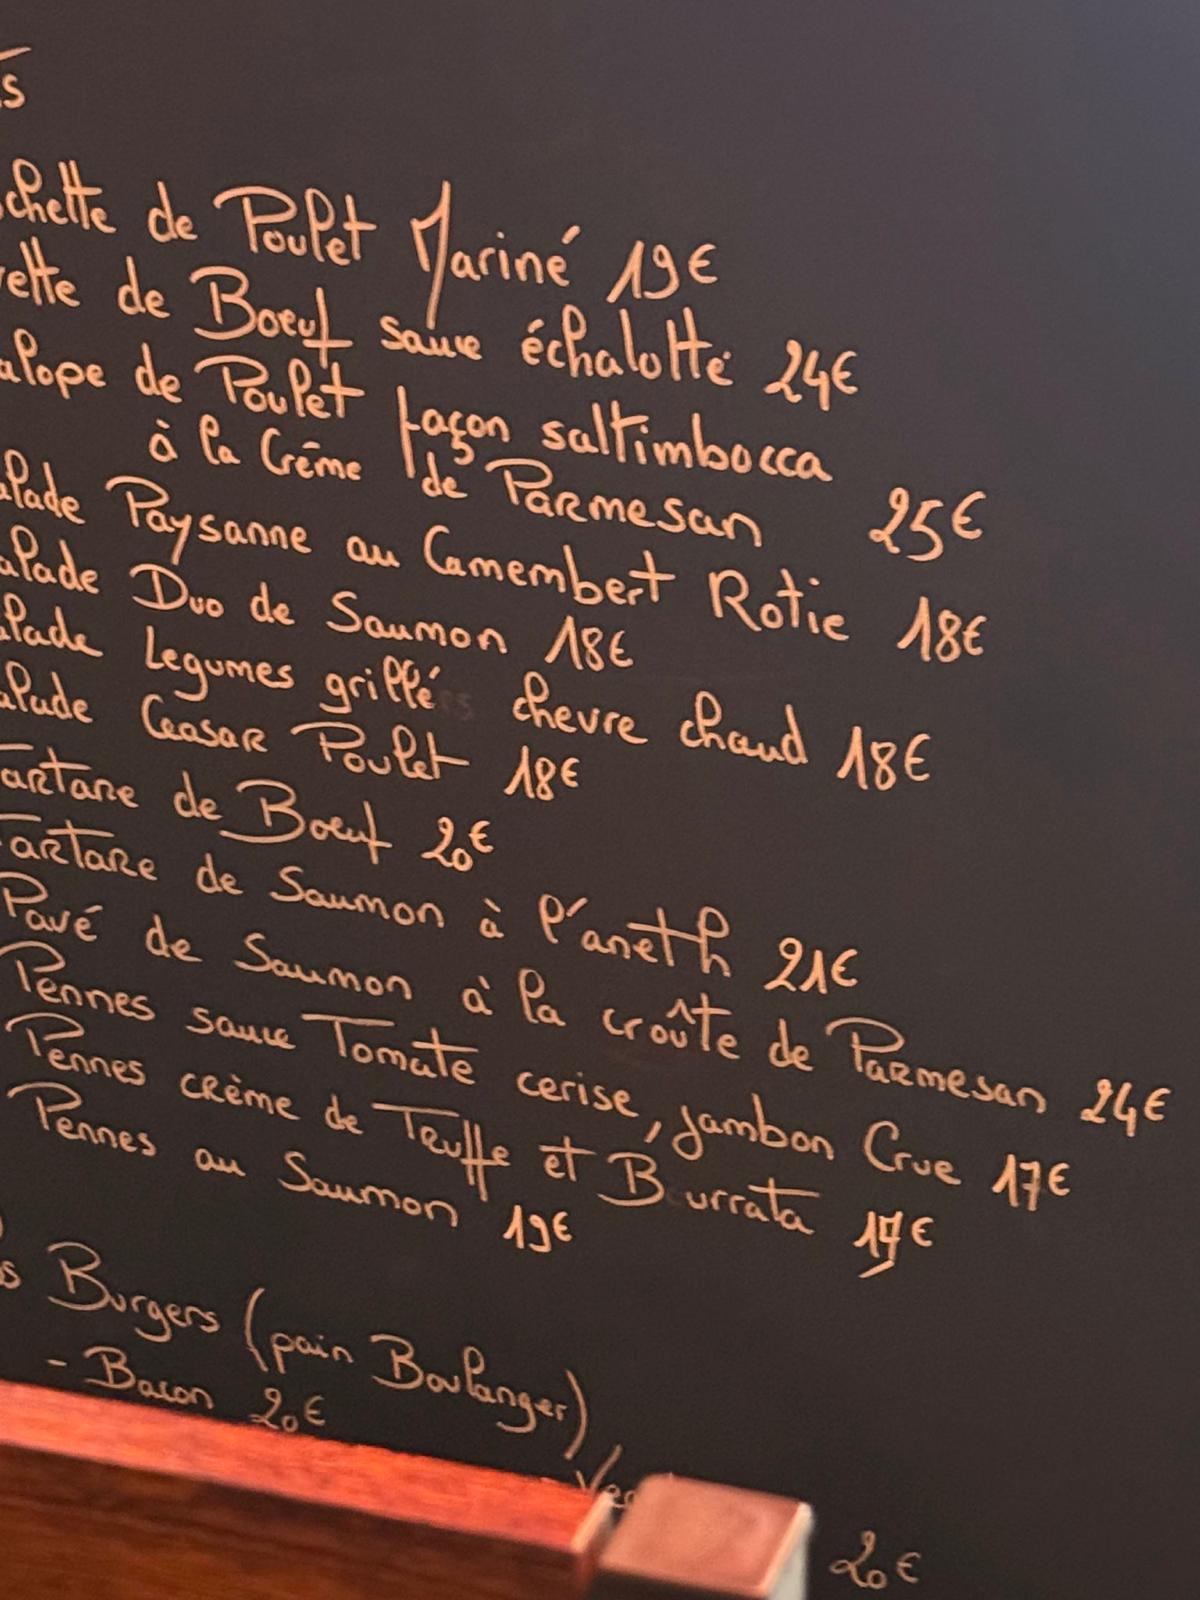 s
chette de Poulet Mariné 19€
ette de Boeuf sauce échalotte 24€
alope de Poulet façon saltimbocca
à la Crême de Parmesan 25€
alade Paysanne au Camembert Rotie 18€
alade Duo de Saumon 18€
alade Legumes grillé chevre chaud 18€
alade Ceasar Poulet 18€
Tartare de Boeuf 20€
Tartare de Saumon à l'aneth 21€
Pavé de Saumon à la croûte de Parmesan 24€
Pennes sauce Tomate cerise, jambon Crue 17€
Pennes crème de Truffe et Burrata €
Pennes au Saumon 19€
s Burgers (pain Boulanger)
- Bacon 20€
20€